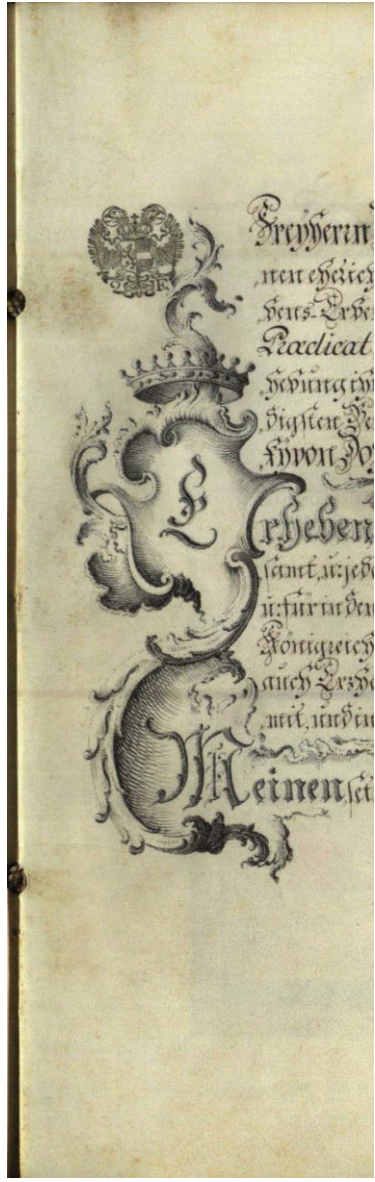 Freyherrn
nen ehelich
bens-Erbe
Prædicat
hebung ih
digsten
Erheben
samt, u: jed
u: für in den
Königreich
auch Erzhe
mit, und in
Meinen